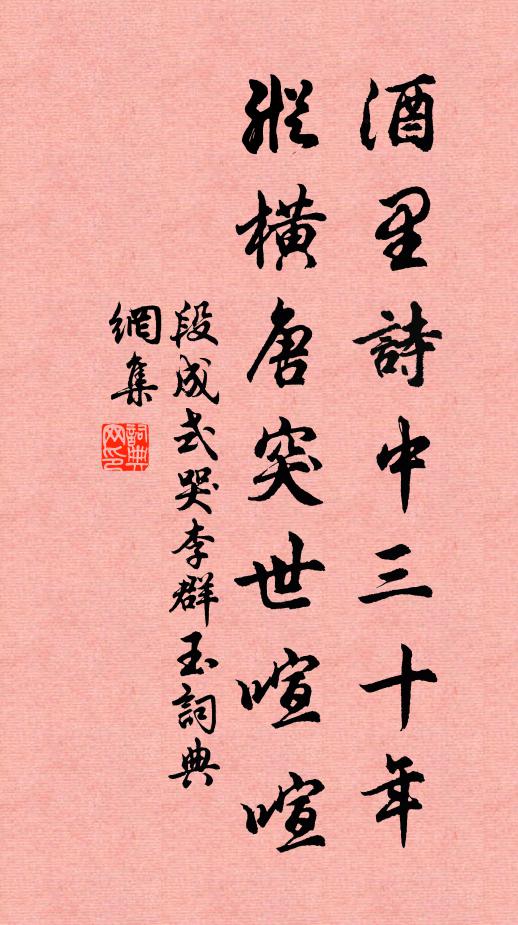 酒里詩中三十年
縱橫唐突世喧喧
段成式哭李群玉詞典
網集
詞典網印